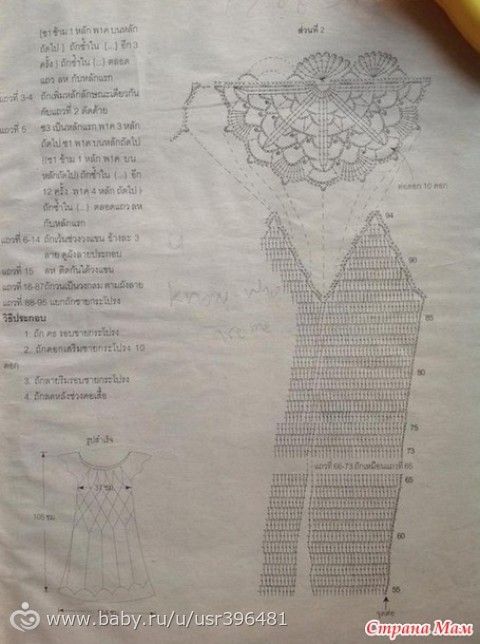 (ช1 ข้าม 1 หลัก พ1ค บนหลัก
ถัดไป } ถักซ้ำใน {...} อีก 3
ครั้ง ) ถักซ้ำใน (...) ตลอด
แถว ลห กับหลักแรก
แถวที่ 3-4 ถักเพิ่มหลักลักษณะเดียวกัน
กับแถวที่ 2 ติดด้วย
แถวที่ 5 ช3 เป็นหลักแรก พ1ค 3 หลัก
ถัดไป ช1 พ1ค บนหลักถัดไป
({ช1 ข้าม 1 หลัก พ1ค บน
หลักถัดไป} ถักซ้ำใน {...} อีก
12 ครั้ง พ1ค 4 หลัก ถัดไป )
ถักซ้ำใน (...) ตลอดแถว ลห
กับหลักแรก
แถวที่ 6-14 ถักเว้นช่วงวงแขน ข้างละ 3
ลาย ดูผังลายประกอบ
แถวที่ 15 ลห ติดกันใต้วงแขน
แถวที่ 16-87 ถักวนเป็นวงกลม ตามผังลาย
แถวที่ 88-95 แยกถักชายกระโปรง
วิธีประกอบ
1. ถัก คธ รอบชายกระโปรง
2. ถักดอกเสริมชายกระโปรง 10
ดอก
3. ถักลายริมรอบชายกระโปรง
4. ถักลดหลังช่วงคอเสื้อ
รูปสำเร็จ
37 ซม.
105 ซม.
ส่วนที่ 2
ต่อดอก 10 ดอก
94
90
85
80
75
73
แถวที่ 66-73 ถักเหมือนแถวที่ 65
65
65
60
55
จุดต่อ
know what
www.baby.ru/u/usr396481
Страна Мам